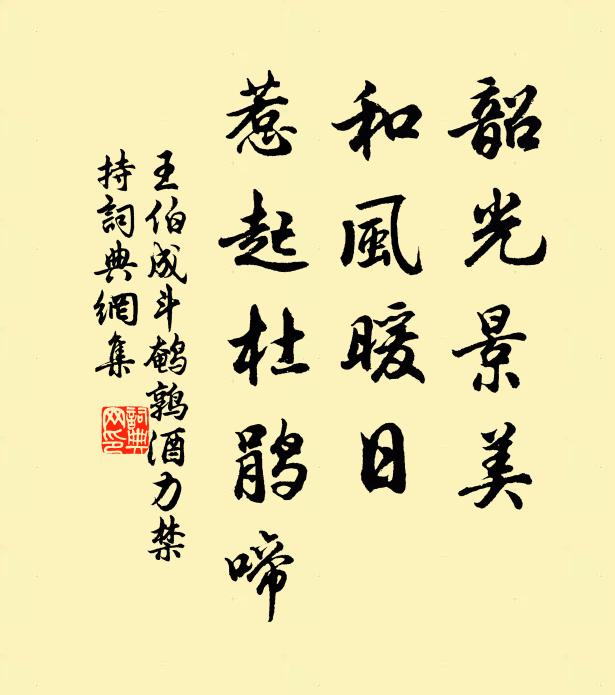 韶光景美
和風暖日
惹起杜鵑啼
王伯成斗鵪鶉酒力禁
持詞典網集
詞典
网印